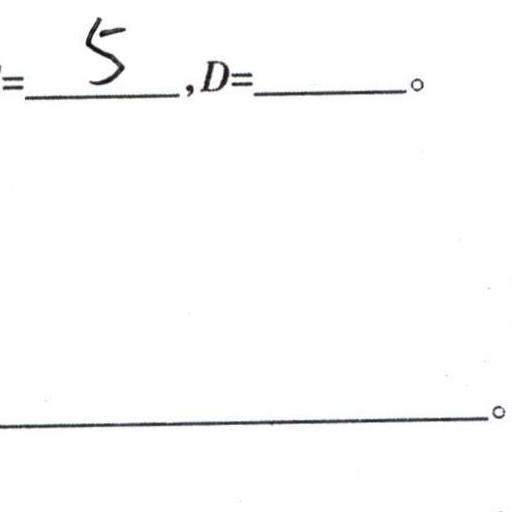 = 5 ,D=______。
______。